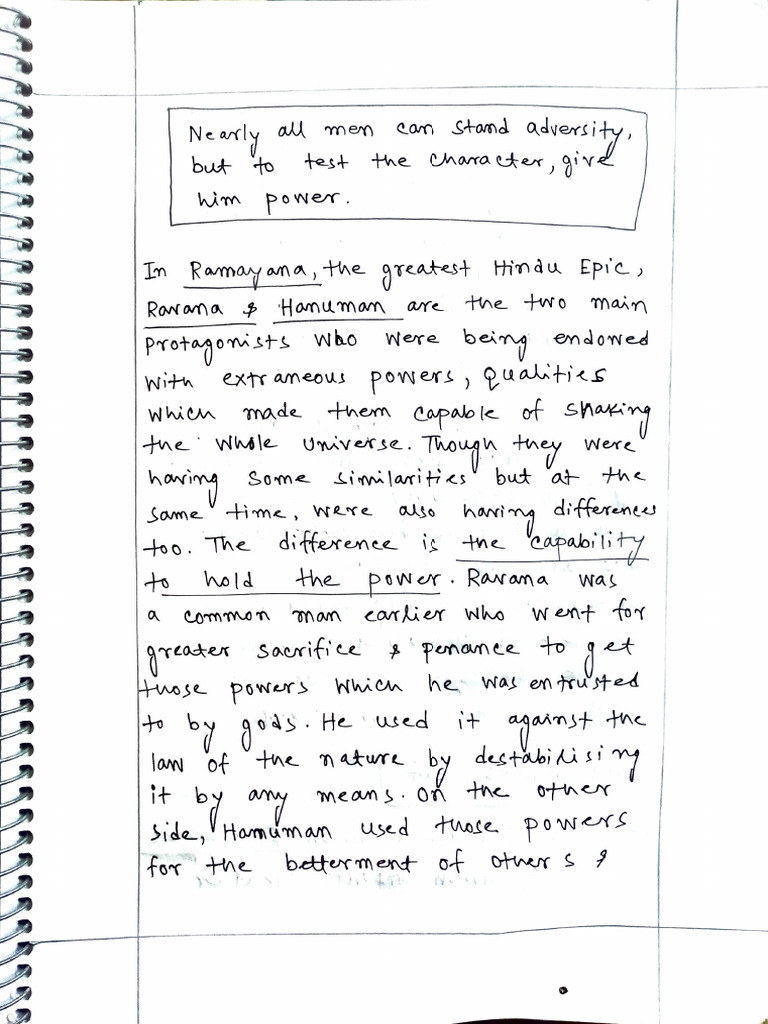 Nearly all men can stand adversity,
but to test the character, give
him power.
In Ramayana, the greatest Hindu Epic,
Ravana & Hanuman are the two main
protagonists who were being endowed
with extraneous powers, qualities
which made them capable of shaking
the whole universe. Though they were
having some similarities but at the
same time, were also having differences
too. The difference is the capability
to hold the power. Ravana was
a common man earlier who went for
greater sacrifice & penance to get
those powers which he was entrusted
to by gods. He used it against the
law of the nature by destabilising
it by any means. On the other
side, Hanuman used those powers
for the betterment of others &